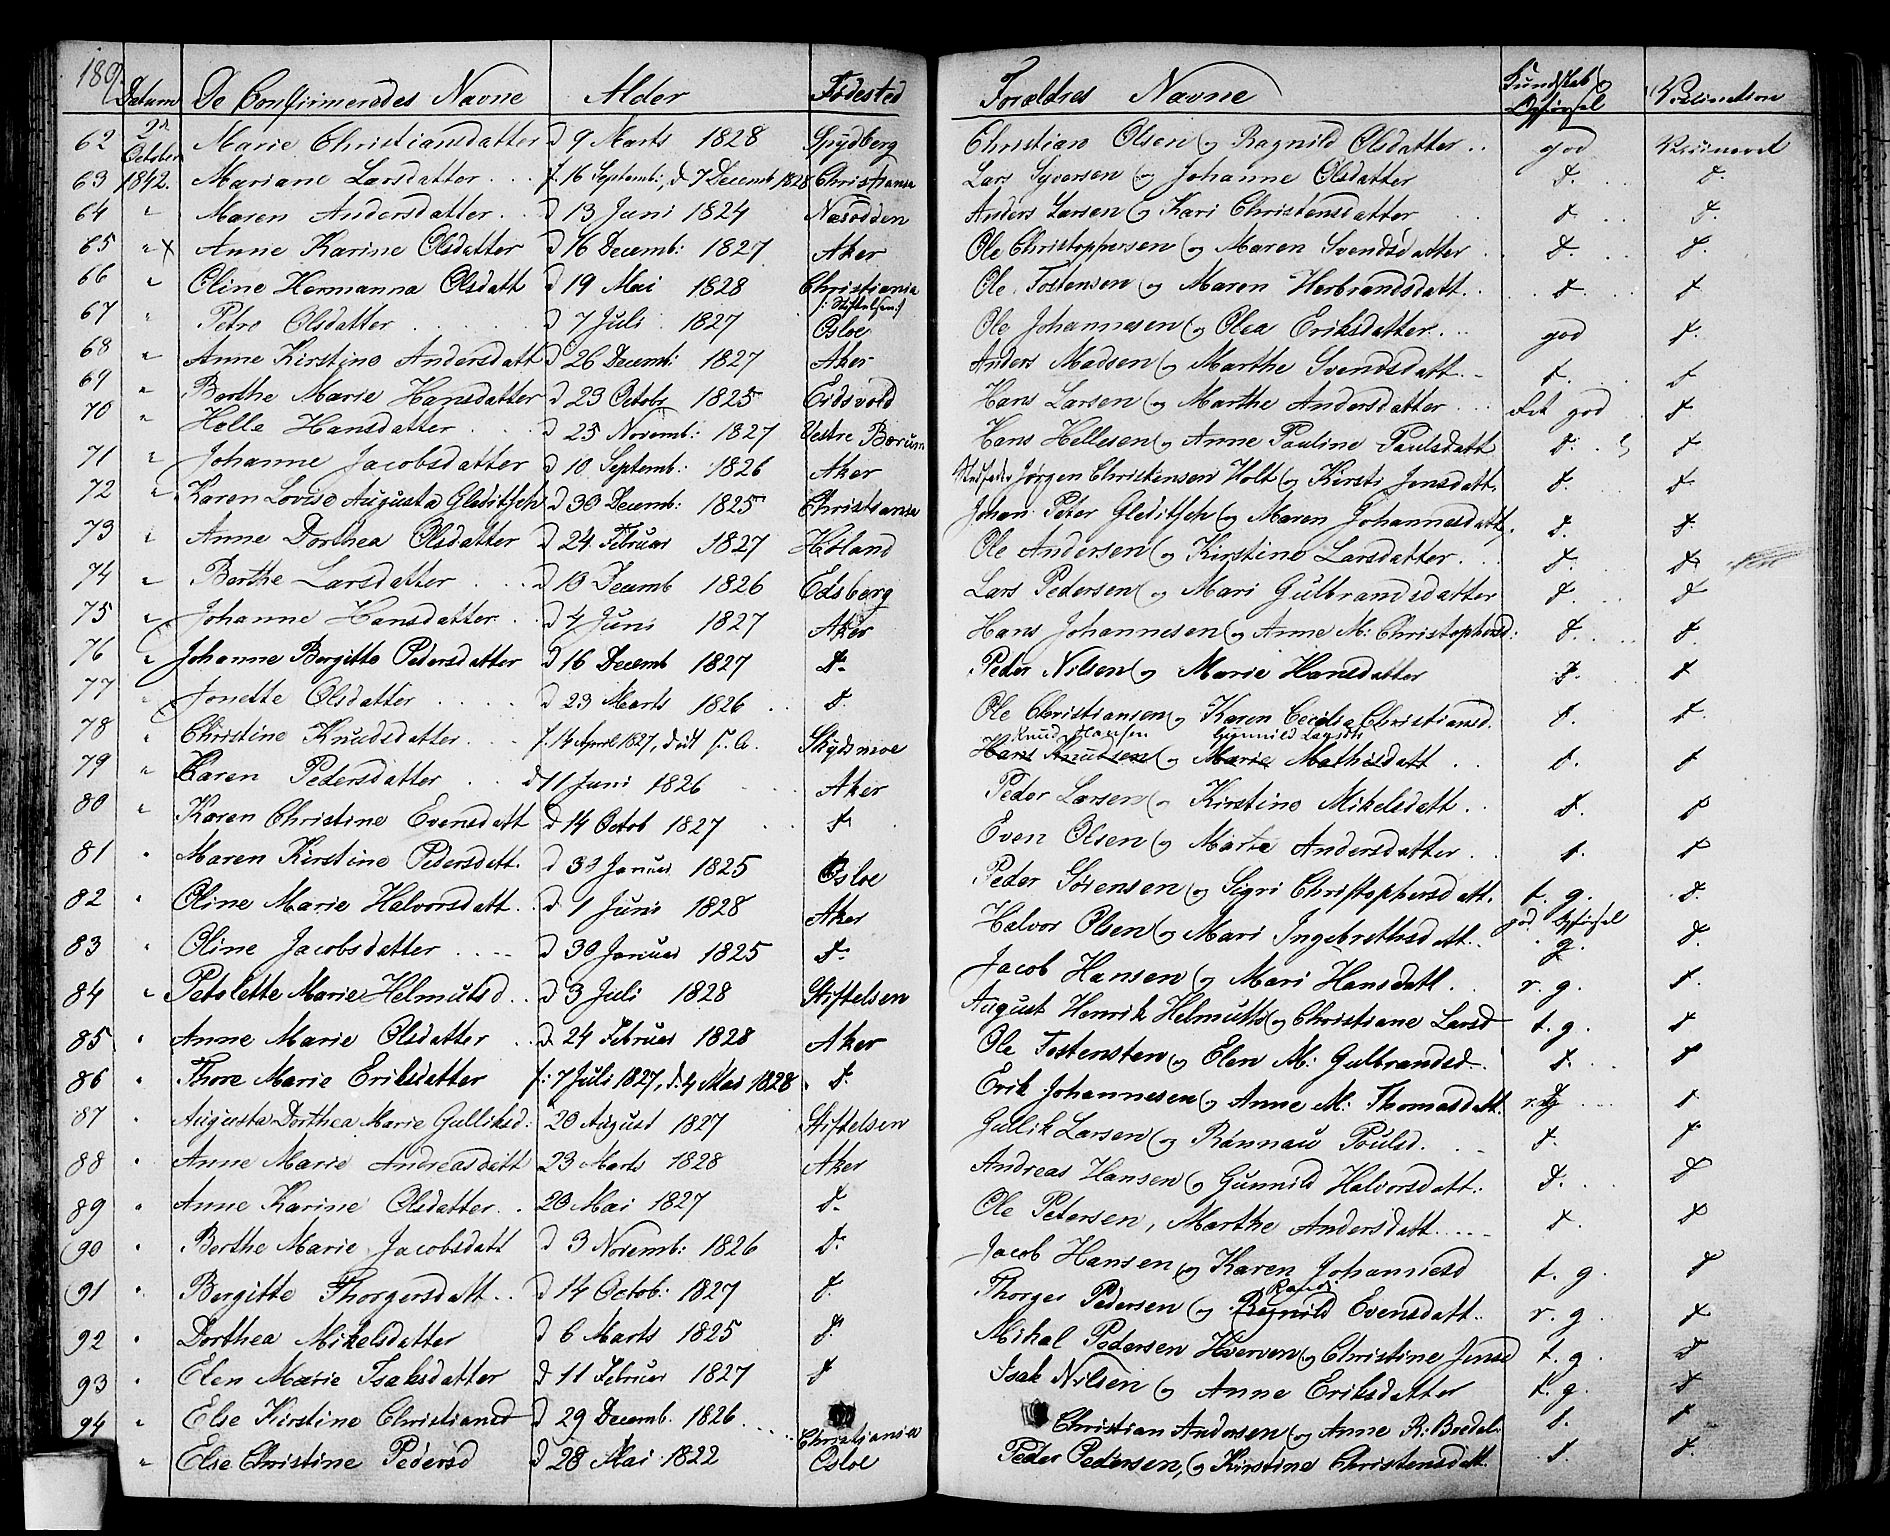 180.
Datum De Confirmeredes Navne Alder Fødested Forældres Navne Kundskab og Opførsel Vaccination
62 2n October Marie Christiansdatter d 9 Marts 1828 Spydberg Christian Olsen og Ragnild Olsdatter .. god Vaccineret
63 1842. Mariane Larsdatter ... f. 16 Septemb:, d 7 Decemb 1828 Christiania Lars Syversen og Johanne Olsdatter d. d.
64 " Maren Andersdatter .. d 13 Juni 1824 Næsodden Anders Larsen og Kari Christensdatter d. d.
65 " x Anne Karine Olsdatter d 16 Decemb: 1827 Aker Ole Christophersen og Maren Svendsdatter d. d.
66 " Oline Hermanna Olsdatt d 19 Mai 1828 Christiania /: Stiftelsen :/ Ole Tostensen og Maren Herbrandsdatt. d d
67 " Petra Olsdatter d 7 Juli 1827 Osloe Ole Johannesen og Olea Eriksdatter ... god d.
68 " Anne Kirstine Andersdatt d 26 Decemb: 1827 Aker Anders Madsen og Marthe Svendsdatt. d. d
69 " Berthe Marie Hansdatter d 23 Octobr 1825 Eidsvold Hans Larsen og Marthe Andersdatter ... det god d
70 " Helle Hansdatter d 25 Novemb: 1827 Vestre Bærum Hans Hellesen og Anne Pauline Paulsdatt d. d
71 " Johanne Jacobsdatter d 10 Septemb: 1826 Aker Stedfader Jørgen Christensen Holt og Kirsti Jensdatt. d. d
72 " Karen Lovise Augusta Gleditsch d 30 Decemb: 1825 Christiania Johan Peter Gleditsch og Maren Johannesdatt. d. d.
73 " Anne Dorthea Olsdatter d 24 Februar 1827 Høland Ole Andersen og Kirstine Larsdatter. d. d.
74 " Berthe Larsdatter d 13 Decemb 1826 Edsberg Lars Pedersen og Mari Gulbrandsdatter d. d
75 " Johanne Hansdatter d 4 Juni 1827 Aker Hans Johannesen og Anne M: Christophersd: d. d
76 " Johanne Bergitte Pedersdatter d 16 Decemb 1827 d. Peder Nilsen og Marie Hansdatter d. d
77 " Jonette Olsdatter d 23 Marts 1826 .. d. Ole Christiansen og Karen Cecilia Christiansd. d. d.
78 " Christine Knudsdatter f. 14 April 1827, døbt s. A. Skydsmoe Knud Hansen Gunnild Larsdt
Hans Knudsen og Marie Mathisdatt .. d. d
79 " Karen Pedersdatter .. d 11 Juni 1826 Aker Peder Larsen og Kirstine Mikelsdatt. d. d
80 " Karen Christine Evensdatt d 14 Octob 1827 d. Even Olsen og Marte Andersdatter .. d. d
81 " Maren Kirstine Pedersdatt. d 30 Januar 1825 Osloe Peder Sörensen og Sigri Christophersdatt. t. g. d.
82 " Oline Marie Halvorsdatt. d 1 Juni 1828 Aker Halvor Olsen og Mari Ingebrethsdatt.. god Opførsel g. d.
83 " Oline Jacobsdatter .... d 30 Januar 1825 d. Jacob Hansen og Mari Hansdatt. r. g. d.
84 " Petolette Marie Helmutsd. d 3 Juli 1828 Stiftelsen August Henrik Helmuths og Christiane Larsd t. g. d
85 " Anne Marie Olsdatter d 24 Februar 1828 Aker Ole Tostensten og Elen M: Gulbrandsd. d. d
86 " Thore Marie Eriksdatter f: 7 Juli 1827, d: 4 Mai 1828 d. Erik Johannesen og Anne M: Thomasdatt. r. g d
87 " Augusta Dorthea Marie Gulliksd: 20 August 1827 Stiftelsen Gullik Larsen og Rannau Poulsd. d. d
88 " Anne Marie Andreasdatt 23 Marts 1828 Aker Andreas Hansen og Gunnild Halvorsdatt: d. d
89 " Anne Karine Olsdatter .. 20 Mai 1827 d. Ole Petersen, Marthe Andersdatt ..... d. d
90 " Berthe Marie Jacobsdatt d 3 Novemb: 1826 d. Jacob Hansen og Karen Johannesd t. g. d
91 " Bergitte Thorgersdatt .. d 14 Octob: 1827 d. Thorger Pedersen og Ragnild Randi Evensdatt.. r. g d
92 " Dorthea Mikelsdatter d 6 Marts 1825 d. Mikal Pedersen Hverven og Christine Jensd t. g. d
93 " Elen Marie Isaksdatter d 11 Februar 1827 d Isak Nilsen og Anne Eriksdatter t. g. d
94 " Else Kirstine Christiansd d 29 Decemb. 1826 .... Christiania Christian Andersen og Anne R: Bredal: d. d
" Else Christine Pedersd d 28 Mai 1822 Osloe Peder Pedersen, og Kirstine Christensdatt. d. d.